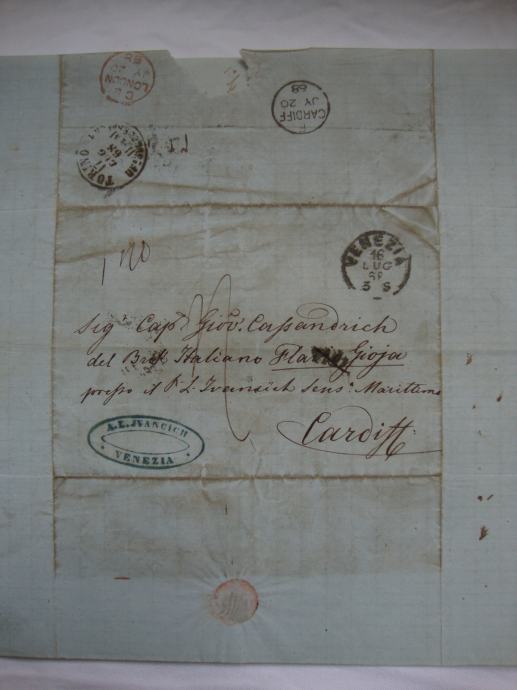 C Z
LONDON
JY 20
68
F
CARDIFF
JY 20
68
TORINO
17
LUG
68
VENEZIA
16
LUG
68
3 S
Sigr Capn Giov. Cassandrich
del Italiano Gioja
presso il P. L. Ivansich Sens. Marittimo
Cardiff
A. L. IVANCICH
VENEZIA